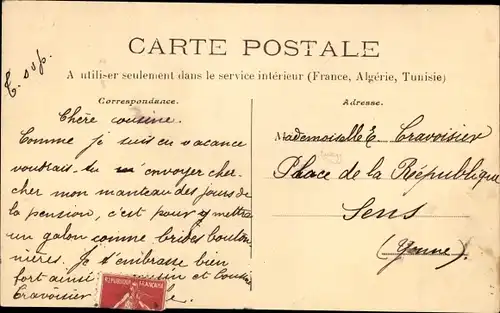 T. svp.
CARTE POSTALE
A utiliser seulement dans le service intérieur (France, Algérie, Tunisie)
Correspondance.
Adresse.
Chère cousine.
Comme je suis en vacance
voudrais-tu m'envoyer cher-
cher mon manteau des jours de
la pension, c'est pour y mettre
un galon comme brides bouton-
nières. Je t'embrasse bien
fort ainsi cousin et Cousine
Cravoisier
REPUBLIQUE FRANÇAISE
Mademoiselle E. Cravoisier
Place de la République
Sens
(Yonne)